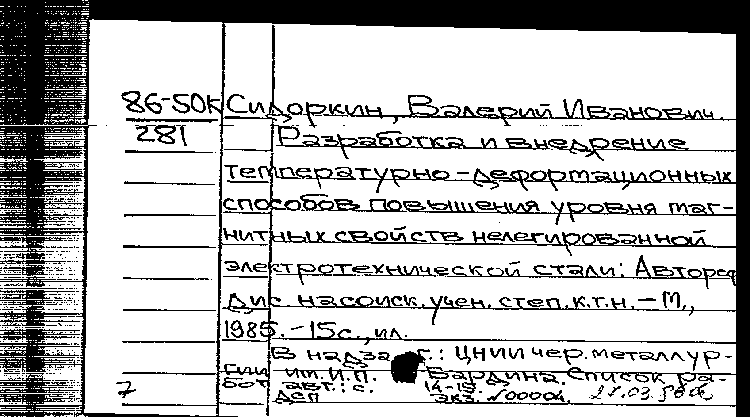 86-50к Сидоркин, Валерий Иванович.
281 Разработка и внедрение
температурно-деформационных
способов повышения уровня маг-
нитных свойств нелегированной
электротехнической стали: Автореф
дис. на соиск. учен. степ. к.т.н. - М.,
1985. - 15 с., ил.
В надзаг.: ЦНИИ чер. металлур-
гии им. И.П. Бардина. Список ра-
бот авт.: с. 14-15.
7 ДСП экз. №00004. 21.03.